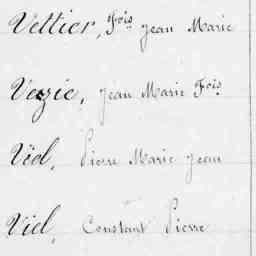 Vettier, Fois Jean Marie
Vezie, Jean Marie Fois
Viel, Pierre Marie Jean
Viel, Constant Pierre